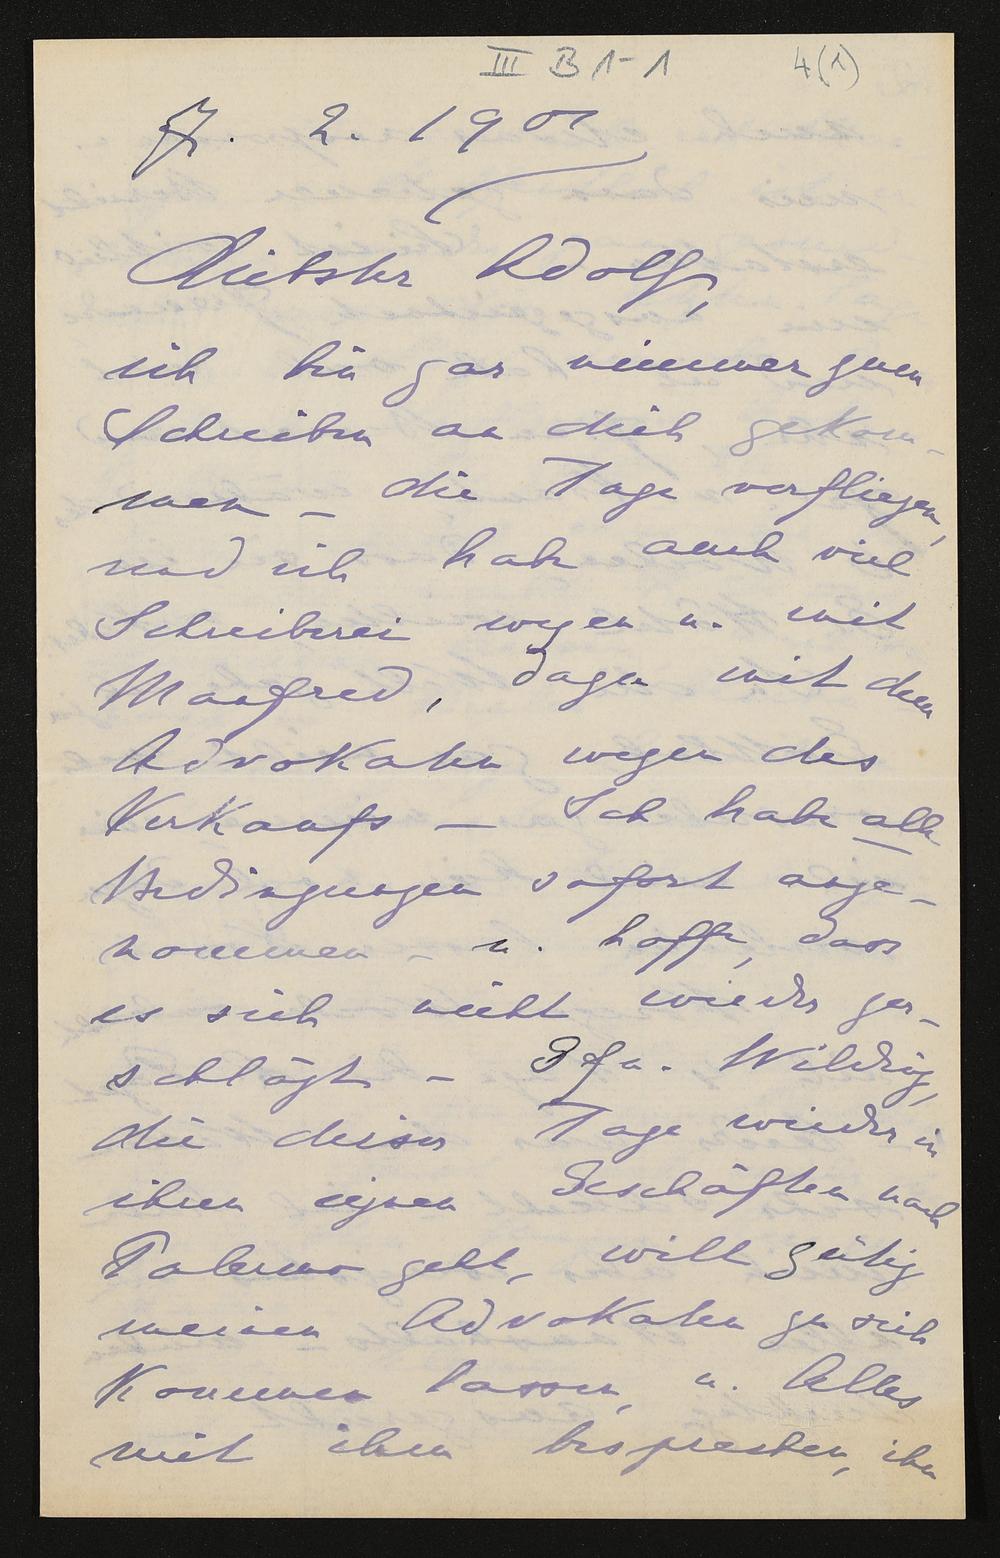 III B 1-1 4(1)
7. 2. 1901
Liebster Adolf,
ich bin gar nimmer zum
Schreiben an dich gekom-
men – die Tage verfliegen,
und ich habe auch viel
Schreiberei wegen u. mit
Manfred, dazu mit dem
Advokaten wegen des
Verkaufs – Ich habe alle
Bedingungen sofort ange-
nommen – u. hoffe, dass
es sich nicht wieder zer-
schlägt – Wildrig,
die dieser Tage wieder in
ihren eignen Geschäften nach
Palermo geht, will gütig
meinen Advokaten zu sich
kommen lassen, u. Alles
mit ihm besprechen, ihm